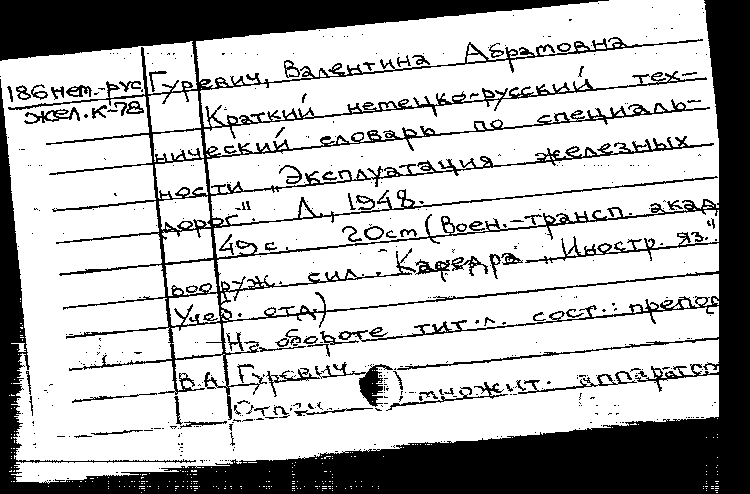 186 нем.-рус
жел. к-78
Гуревич, Валентина Абрамовна
Краткий немецко-русский тех-
нический словарь по специаль-
ности „Эксплуатация железных
дорог". Л., 1948.
49 с. 20 см (Воен.-трансп. акад
вооруж. сил. Кафедра „Иностр. яз."
Учеб. отд.)
На обороте тит. л. сост.: препод
В.А. Гуревич
Отпеч. множит. аппаратом